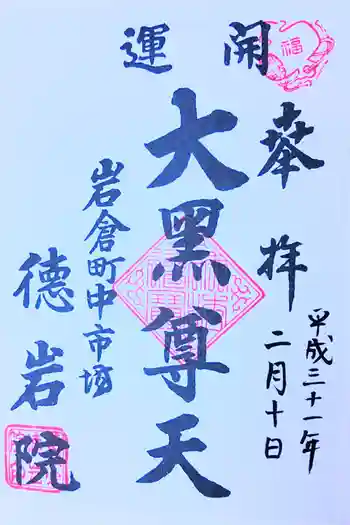 開運
奉拝
平成三十一年
二月十日
大黑尊天
岩倉町中市場
德岩院
福